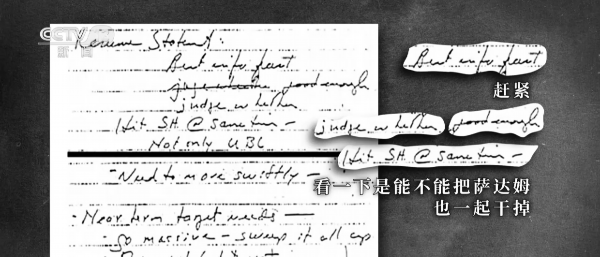 CCTV 13
新闻
Best info fast
judge whether good enough
judge whether
Hit SH @ same time -
Not only UBL
- Need to move swiftly -
- Near term target needs -
- go massive - sweep it all up
Best info fast
赶紧
judge whether good enough
Hit SH @ same time -
看一下是能不能把萨达姆
也一起干掉